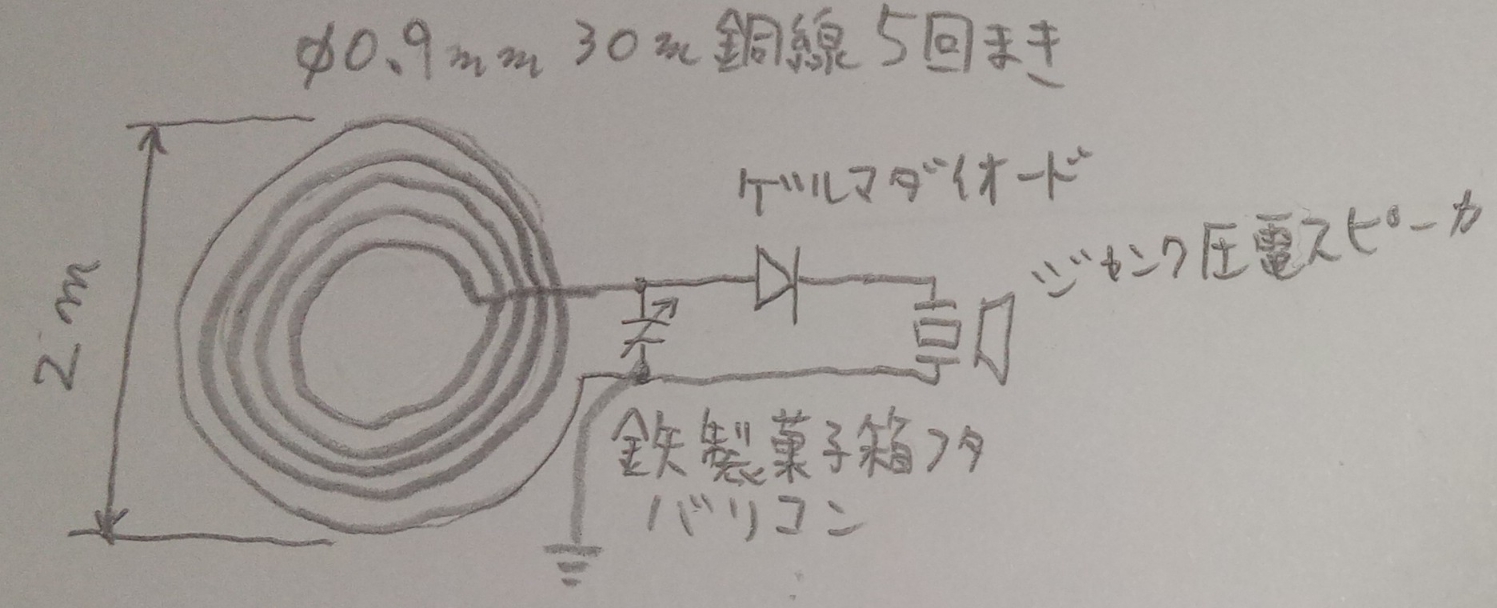 φ0.9mm 30m銅線5回まき
ゲルマダイオード
ジャンク圧電スピーカ
2m
鉄製菓子箱フタ
バリコン